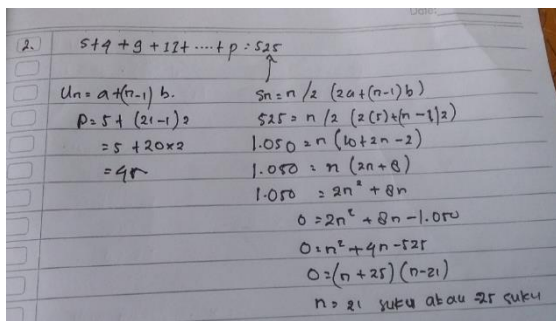 2. 5+9+9+12+....+p=525
Un=a+(n-1)b.
P=5+(21-1)2
=5+20×2
=45
Sn=n/2 (2a+(n-1)b)
525=n/2 (2(5)+(n-1)2)
1.050=n(10+2n-2)
1.050=n(2n+8)
1.050=2n²+8n
0=2n²+8n-1.050
0=n²+4n-525
0=(n+25)(n-21)
n=21 suku atau -25 suku